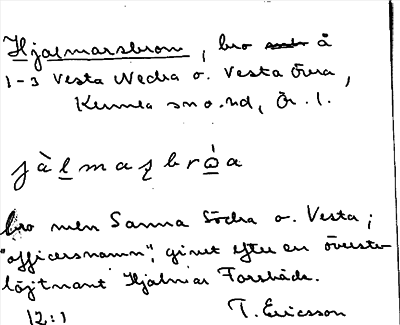 Hjalmarsbron, bro å
1-3 Vesta Nedra o. Vesta Övra,
Kumla sn o. hd, Ör. l.
jàlmazbrὼa
bro mellan Sanna Södra o. Vesta;
"officersnamn", givet efter en överste-
löjtnant Hjalmar Forssköde.
12:1 T. Ericsson